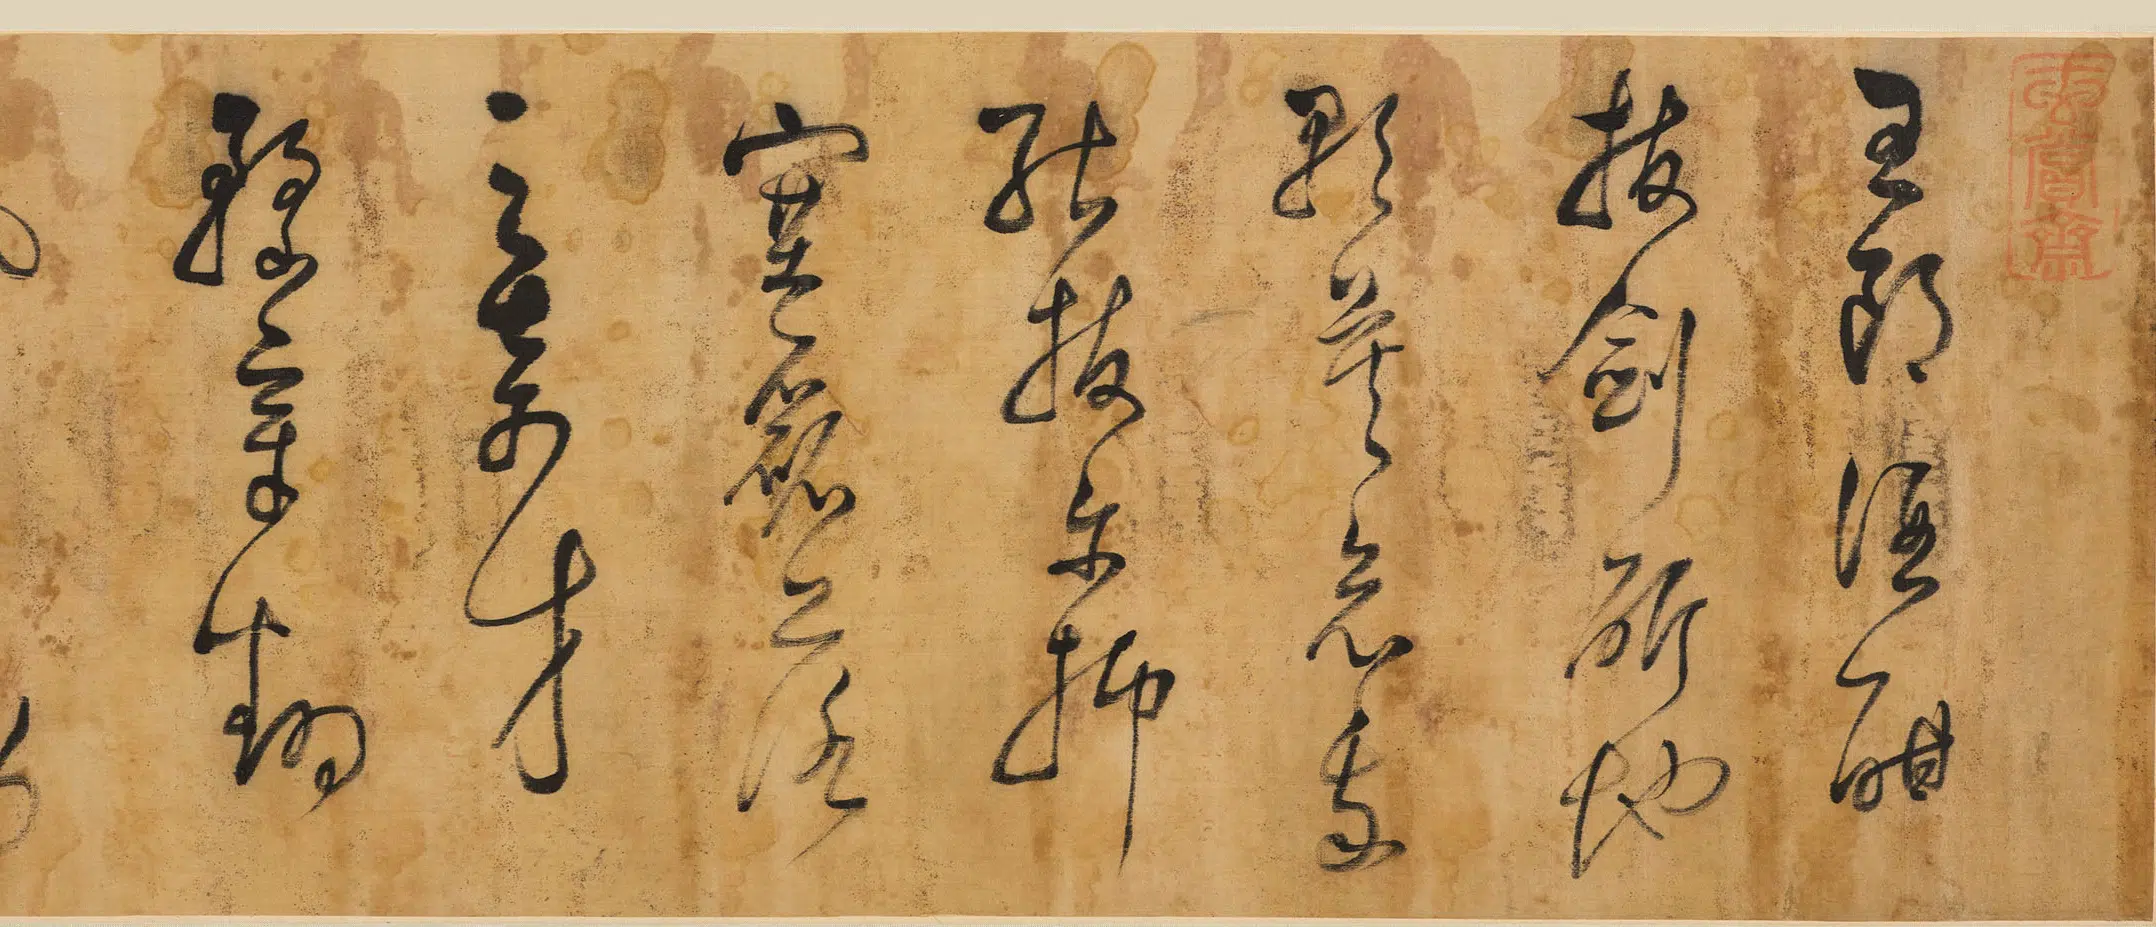 王郎酒酣
拔劍斫地
歌莫哀我
能拔爾抑
塞磊落
之奇才
豫章翻